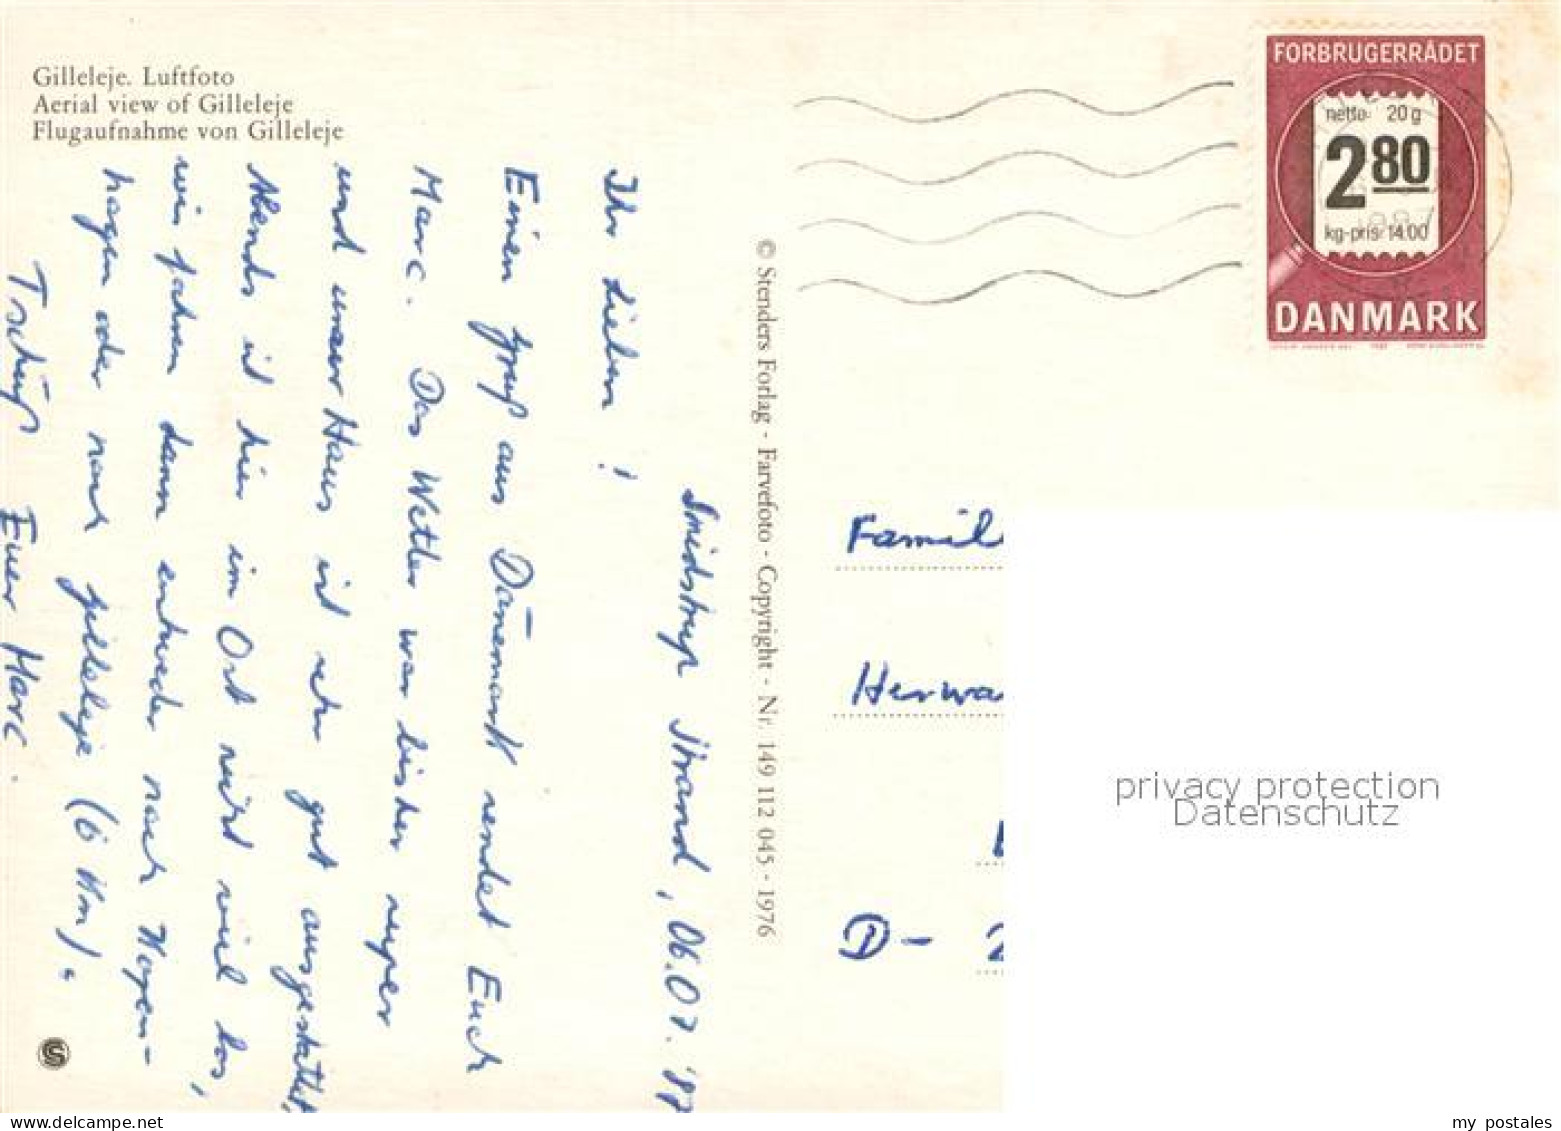 Gilleleje. Luftfoto
Aerial view of Gilleleje
Flugaufnahme von Gilleleje
Smidstrup Strand, 06.07.'87
Ihr Lieben!
Einen Gruß aus Dänemark sendet Euch
Marc. Das Wetter war bisher super
und unser Haus ist sehr gut ausgestattet.
Abends ist hier im Ort nicht viel los,
wir fahren dann entweder nach Kopen-
hagen oder nach Gilleleje (6 km).
Tschüß Euer Marc.
© Stenders Forlag - Farvefoto - Copyright - Nr. 149 112 045 - 1976
FORBRUGERRÅDET
netto 20 g
2 80
kg-pris 14.00
DANMARK
1987
Famil
Herwa
D-
privacy protection
Datenschutz
S
my postales
www.delcampe.net